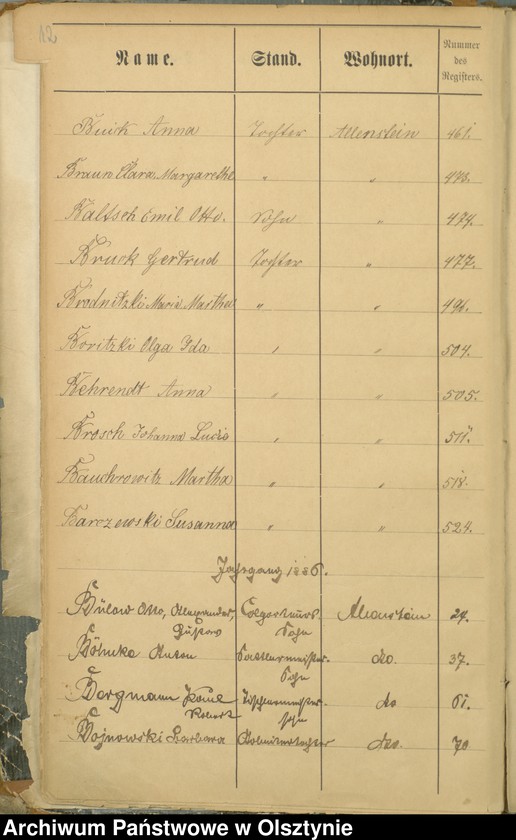 12
Name. Stand. Wohnort. Nummer des Registers.
Buick Anna Tochter Allenstein 461.
Braun Clara Margarethe " " 473.
Baltsch Emil Otto. Sohn " 474.
Bruck Gertrud Tochter " 477.
Brodnitzki Marie Martha " " 496.
Boritzki Olga Ida " " 504.
Behrendt Anna " " 505.
Brosch Johanna Lucie " " 511.
Bauchrowitz Martha " " 518.
Barczewski Susanna " " 524.
Jahrgang 1886.
Bülow Otto, Alexander, Allenstein 24.
Gustav Sohn
Böhnke Anton Sattlermeister- do. 37.
Sohn
Borgmann Karl Tischlermeister- do 61.
Robert sohn
Bojnowski Barbara Arbeitertochter do. 70
Archiwum Państwowe w Olsztynie